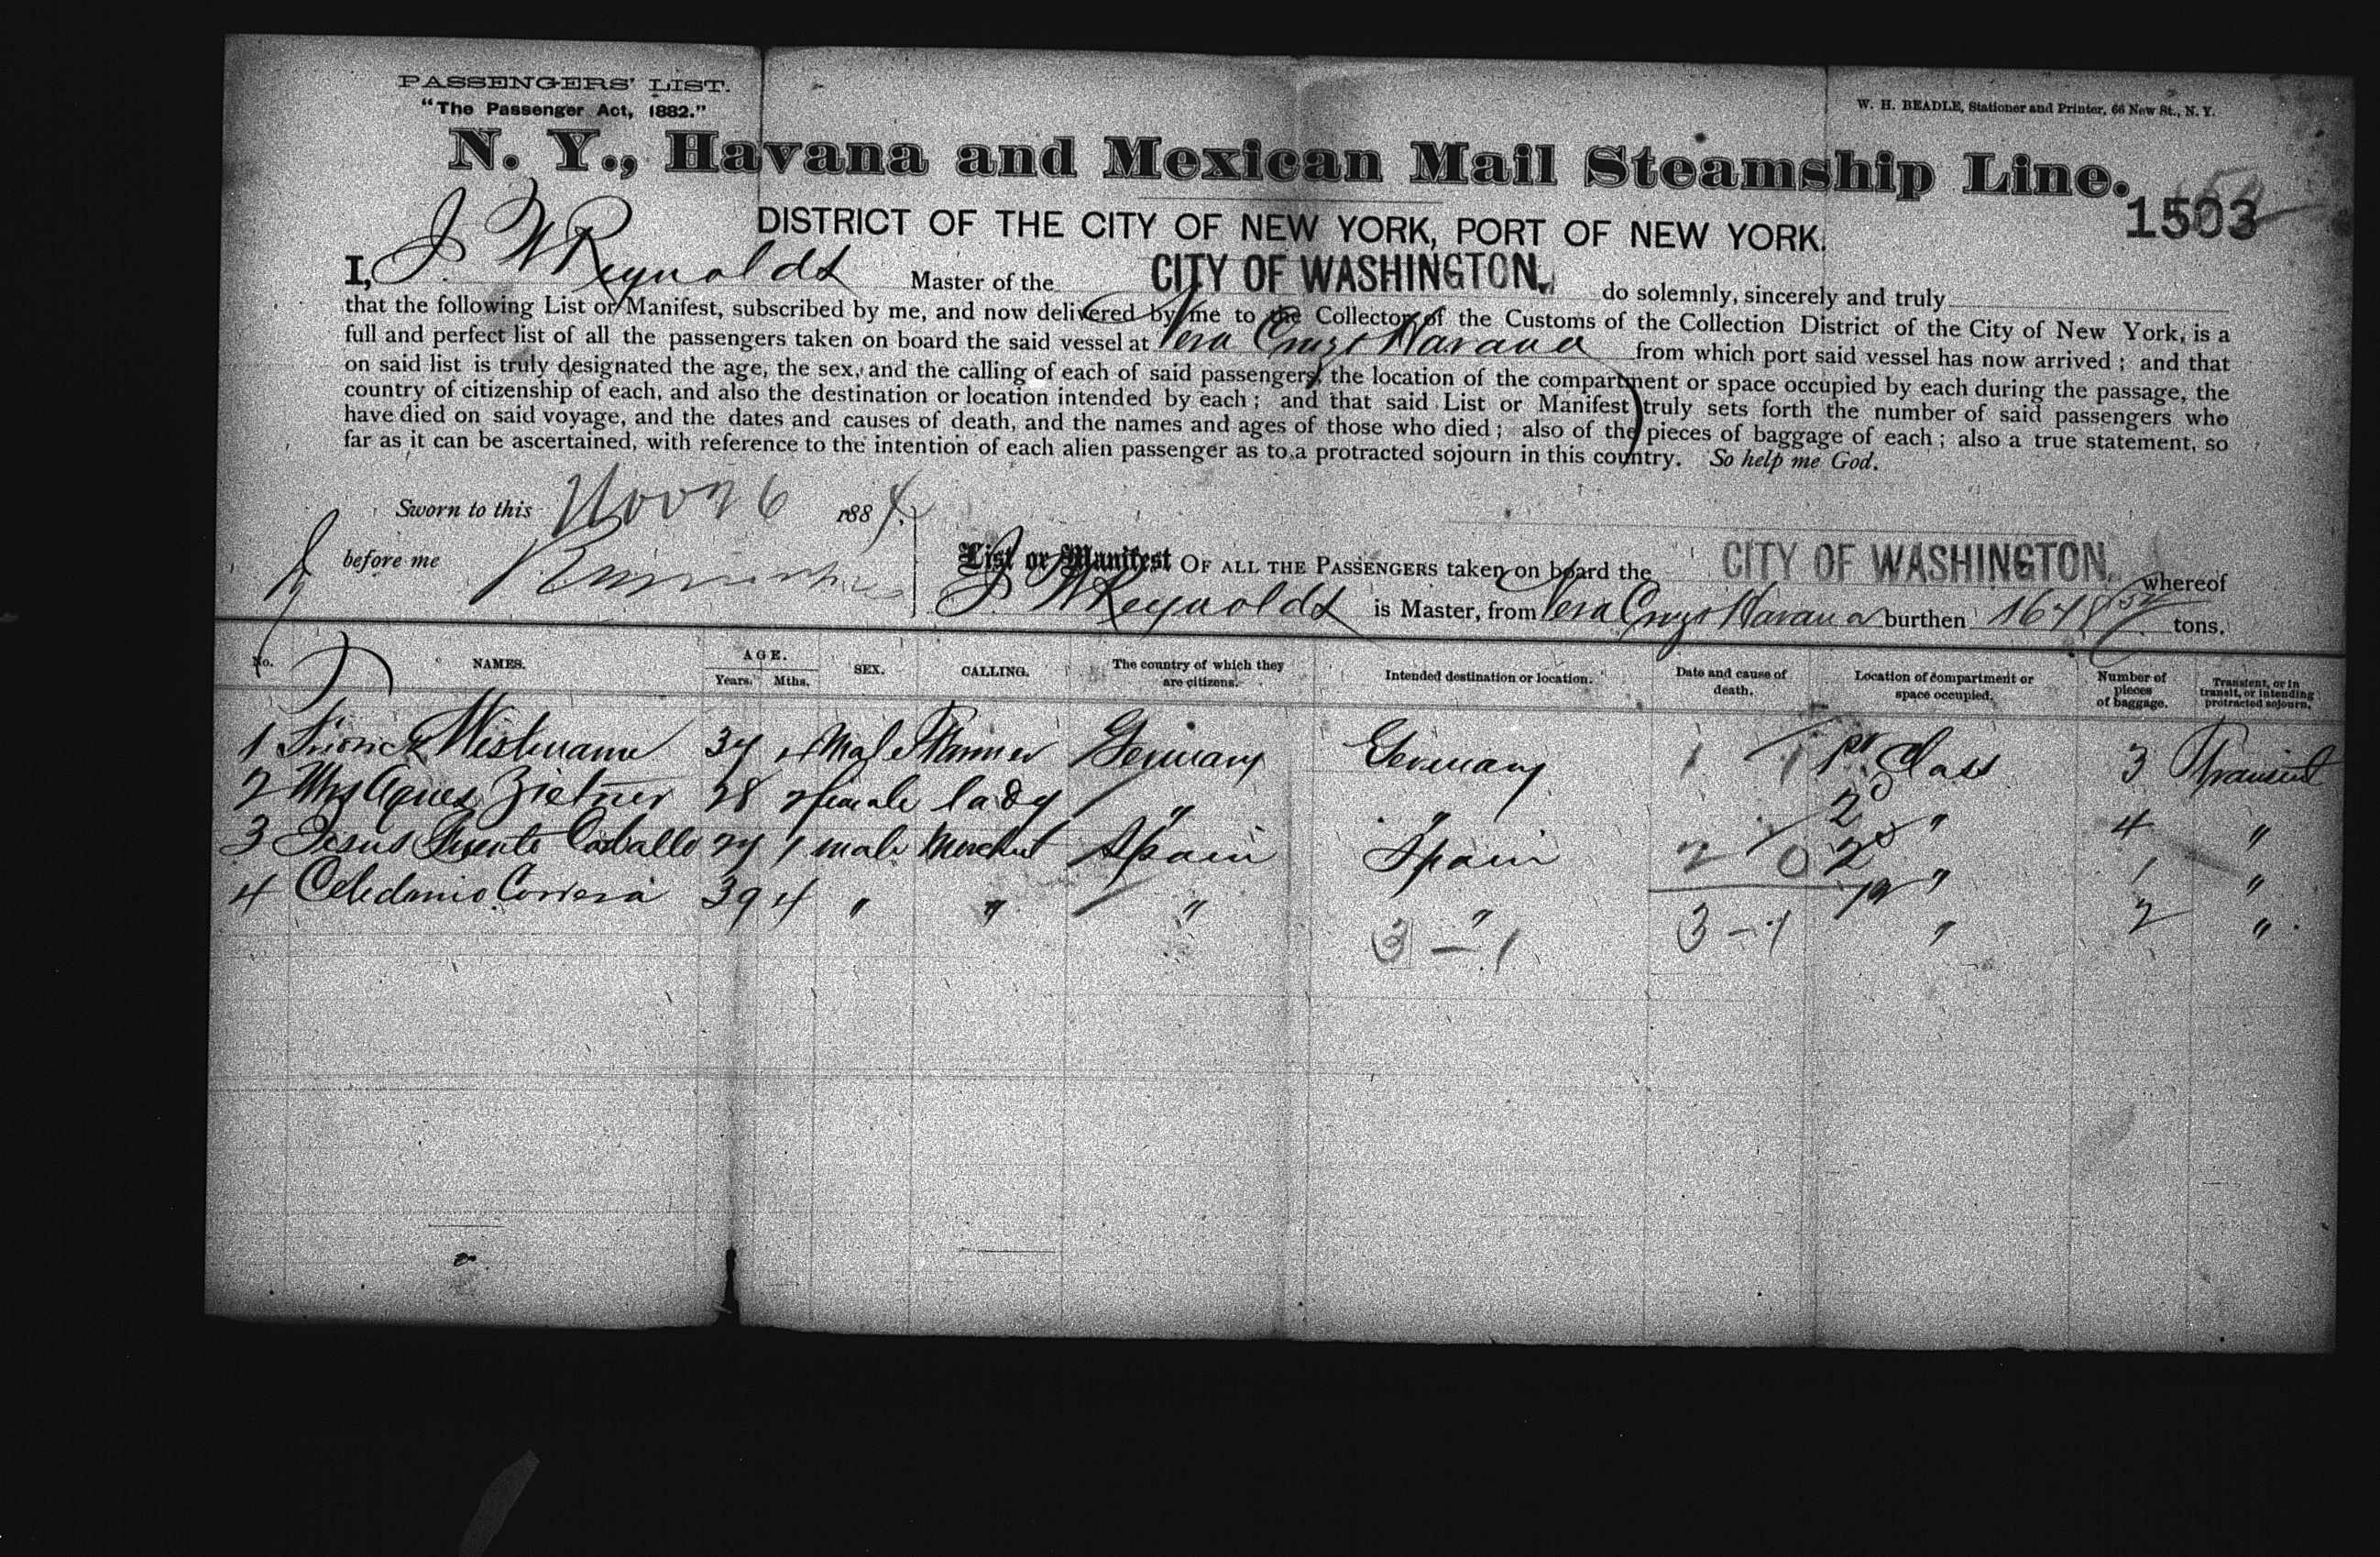 PASSENGERS' LIST.
"The Passenger Act, 1882."
W. H. BEADLE, Stationer and Printer, 66 New St., N. Y.
N. Y., Havana and Mexican Mail Steamship Line.
1503
DISTRICT OF THE CITY OF NEW YORK, PORT OF NEW YORK.
I, J. W Reynolds Master of the CITY OF WASHINGTON. do solemnly, sincerely and truly
that the following List or Manifest, subscribed by me, and now delivered by me to the Collector of the Customs of the Collection District of the City of New York, is a
full and perfect list of all the passengers taken on board the said vessel at Vera Cruz & Havana from which port said vessel has now arrived; and that
on said list is truly designated the age, the sex, and the calling of each of said passengers, the location of the compartment or space occupied by each during the passage, the
country of citizenship of each, and also the destination or location intended by each; and that said List or Manifest truly sets forth the number of said passengers who
have died on said voyage, and the dates and causes of death, and the names and ages of those who died; also of the pieces of baggage of each; also a true statement, so
far as it can be ascertained, with reference to the intention of each alien passenger as to a protracted sojourn in this country. So help me God.
Sworn to this Nov 26 1884.
before me
List or Manifest OF ALL THE PASSENGERS taken on board the CITY OF WASHINGTON. whereof
J. W Reynolds is Master, from Vera Cruz & Havana burthen 1648 tons.
No. NAMES. AGE. Years. Mths. SEX. CALLING. The country of which they are citizens. Intended destination or location. Date and cause of death. Location of compartment or space occupied. Number of pieces of baggage. Transient, or in transit, or intending protracted sojourn.
1 Westmann Male Germany Germany 1 1 1st Class 3 Transient
2 Mrs Agnes Zietner 28 female lady " " 2d " 4 "
3 Jesus Puente Caballo 1 male Merchant Spain Spain 2 0 2d " 1 "
4 Celedonio Correra 39 4 " " " " 1st " 2 "
3 - 1 3 - 1